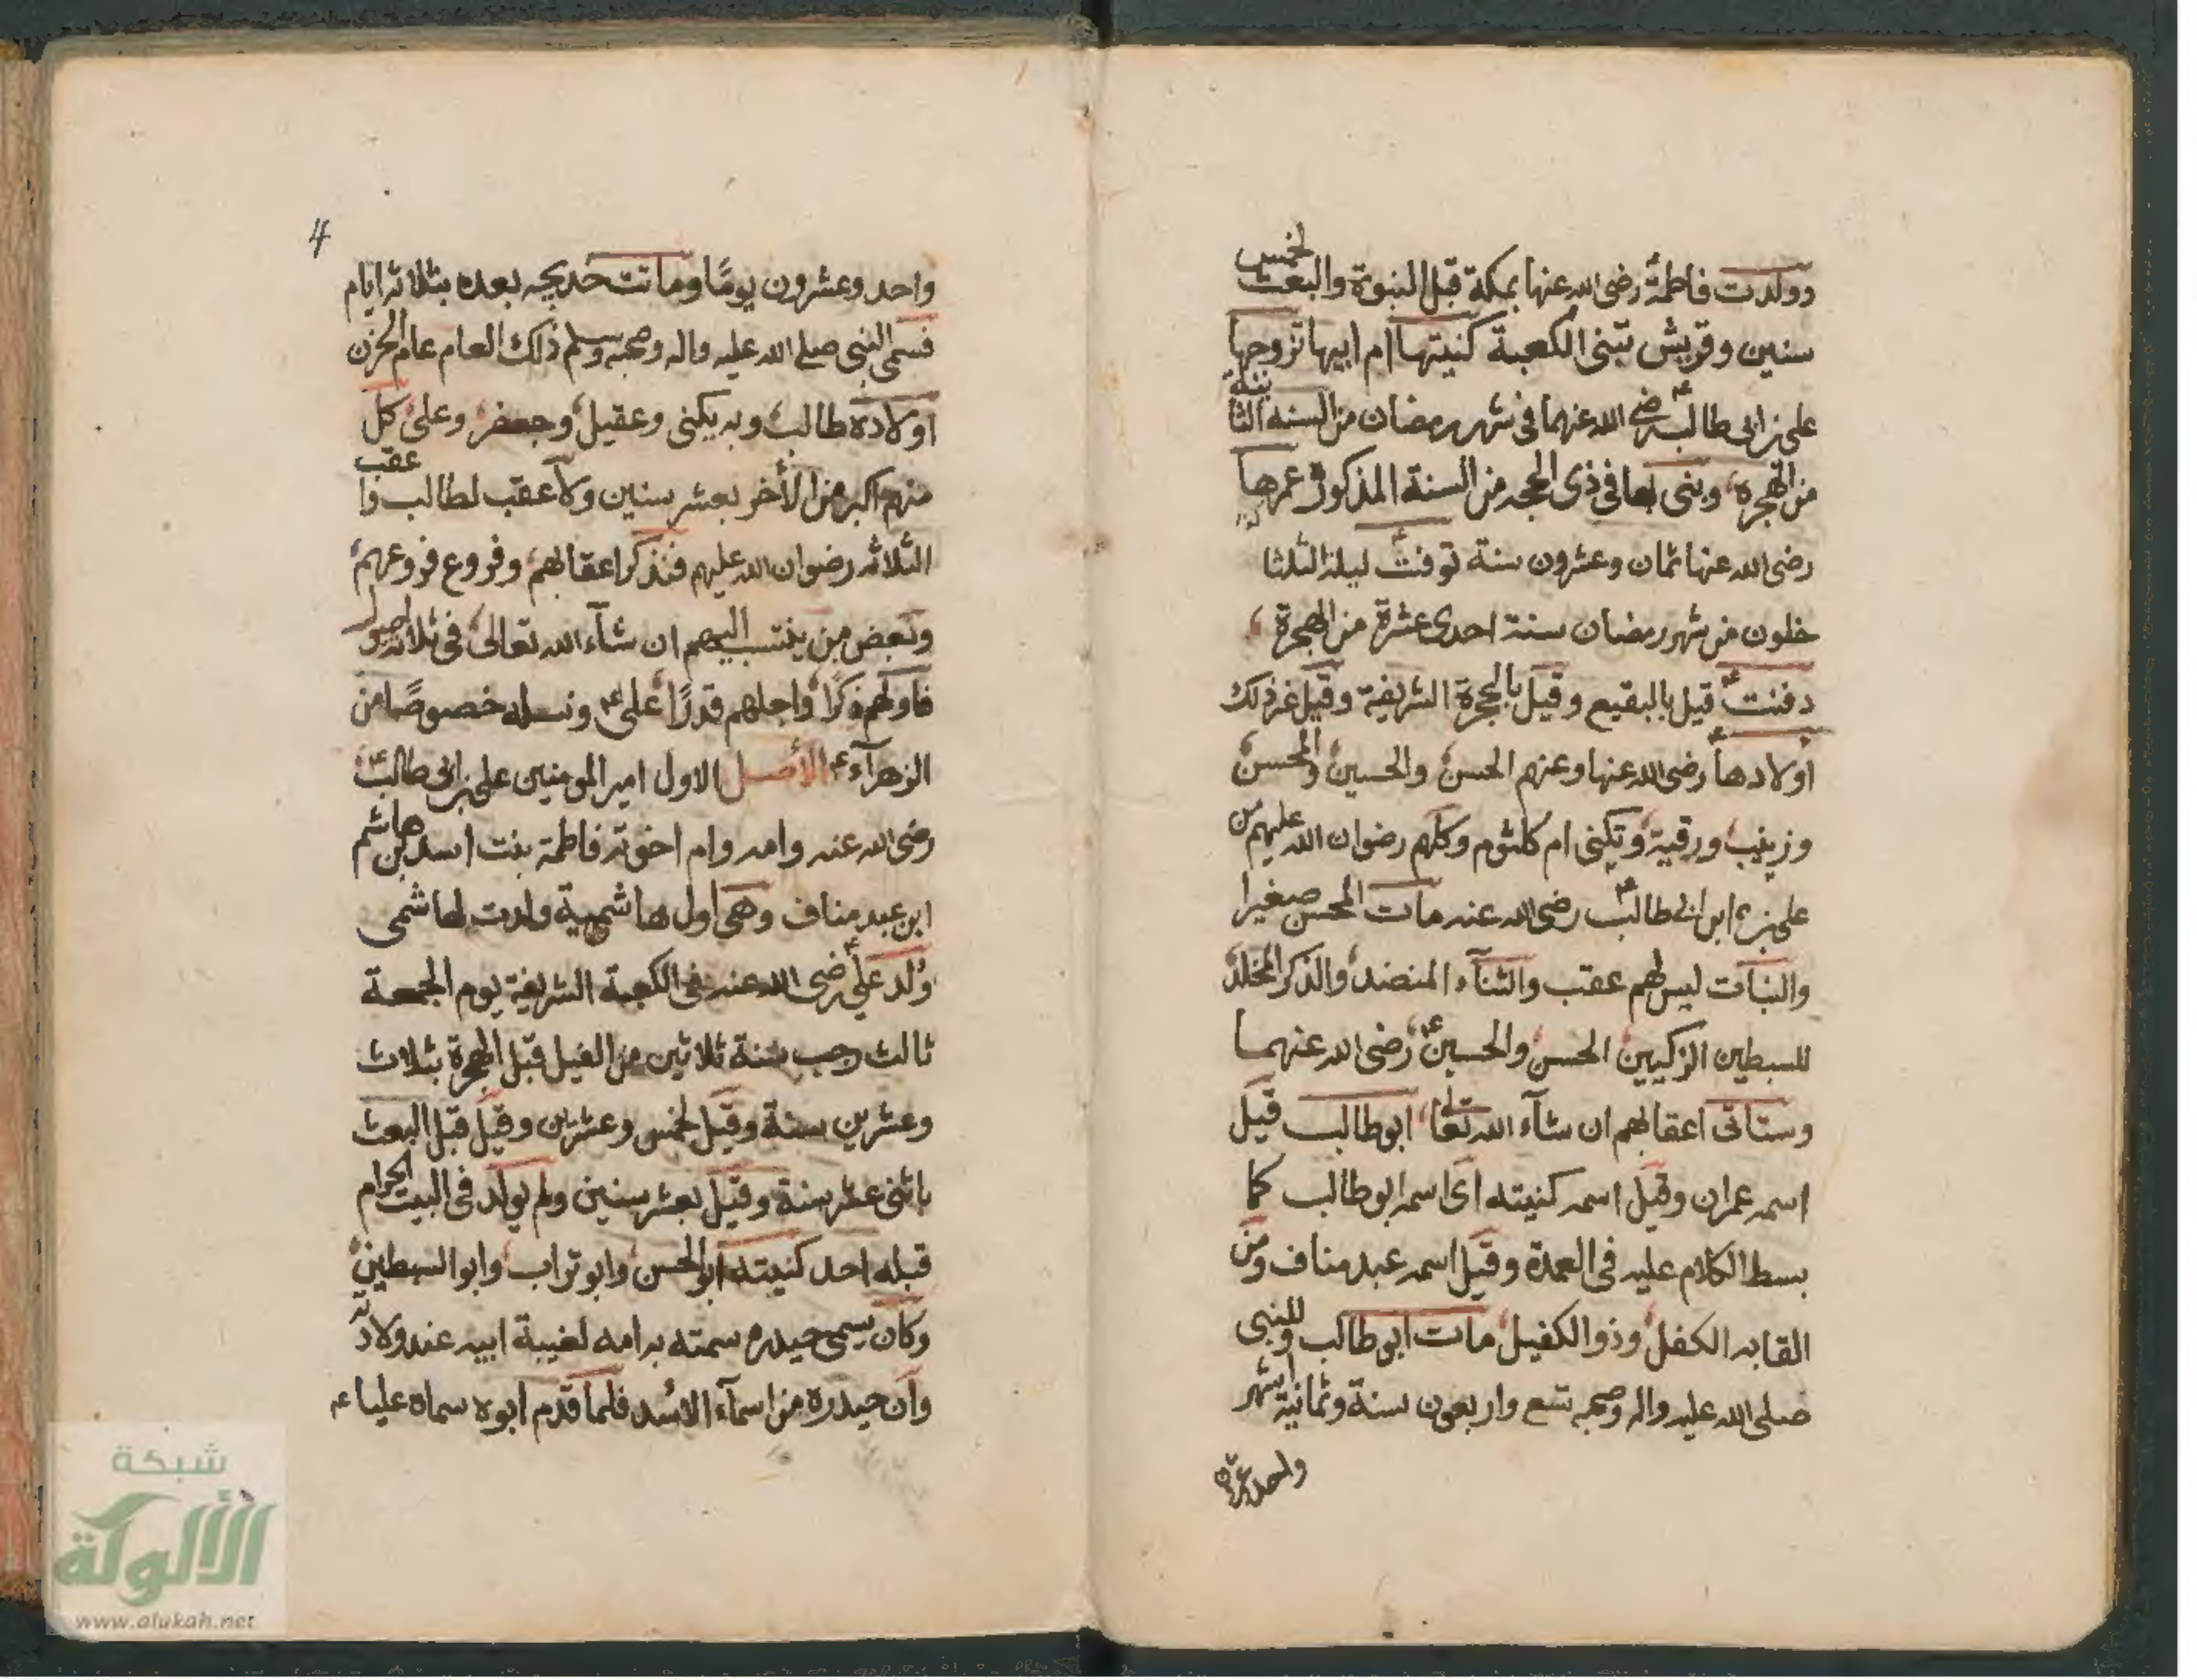 وولدت فاطمة رضى الله عنها بمكة قبل النبوة والبعث لخمس
سنين وقريش تبنى الكعبة كنيتها ام ابيها تزوجها
على بن ابى طالب رضى الله عنهما فى شهر رمضان من السنه الثانية
من الهجرة وبنى بها فى ذى الحجه من السنة المذكور عمرها
رضى الله عنها ثمان وعشرون سنة توفت ليلة الثلثا
خلون من شهر رمضان سنة احدى عشرة من الهجرة
دفنت قيل بالبقيع وقيل بالحجرة الشريفة وقيل غير ذلك
اولادها رضى الله عنها وعنهم الحسن والحسين والمحسن
وزينب ورقية وتكنى ام كلثوم وكلهم رضوان الله عليهم من
على بن ابى طالب رضى الله عنه مات المحسن صغيرا
والبنات ليس لهم عقب والثنآء المنضد والذكر المخلد
للسبطين الزكيين الحسن والحسين رضى الله عنهما
وستاتى اعقابهم ان شآء الله تعالى ابوطالب قيل
اسمه عمران وقيل اسمه كنيته اى اسمه ابوطالب كما
بسط الكلام عليه فى العمدة وقيل اسمه عبد مناف ومن
القابه الكفل وذو الكفيل مات ابوطالب وللنبى
صلى الله عليه واله وصحبه تسع واربعون سنة وثمانية اشهر
واحد وعشرون
4
واحد وعشرون يومًا وماتت خديجه بعده بثلاثة ايام
فسمى النبى صلى الله عليه واله وصحبه وسلم ذلك العام عام الحزن
اولاده طالب وبه يكنى وعقيل وجعفر وعلى كل
منهم اكبر من الأخر بعشر سنين ولا عقب لطالب وا عقب
الثلاثه رضوان الله عليهم فنذكر اعقابهم وفروع فروعهم
وبعض من ينتسب اليهم ان شآء الله تعالى فى ثلاثة اصول
فاولهم ذكرًا واجلهم قدرًا على ونسله خصوصًا من
الزهرآء الأصل الاول امير المومنين على بن ابى طالب
رضى الله عنه وامه وام اخوته فاطمة بنت اسد بن هاشم
ابن عبد مناف وهى اول هاشمية ولدت لهاشمى
وُلد على رضى الله عنه فى الكعبة الشريفة يوم الجمعة
ثالث رجب سنة ثلاثين من الفيل قبل الهجرة بثلاث
وعشرين سنة وقيل لخمس وعشرين وقيل قبل البعث
باثنى عشر سنة وقيل بعشر سنين ولم يولد فى البيت الحرام
قبله احد كنيته ابو الحسن وابو تراب وابوالسبطين
وكان يسمى حيدره سمته به امه لغيبة ابيه عند ولادته
وان حيدره من اسمآء الاسد فلما قدم ابوه سماه عليا
شبكة
الألوكة
www.alukah.net